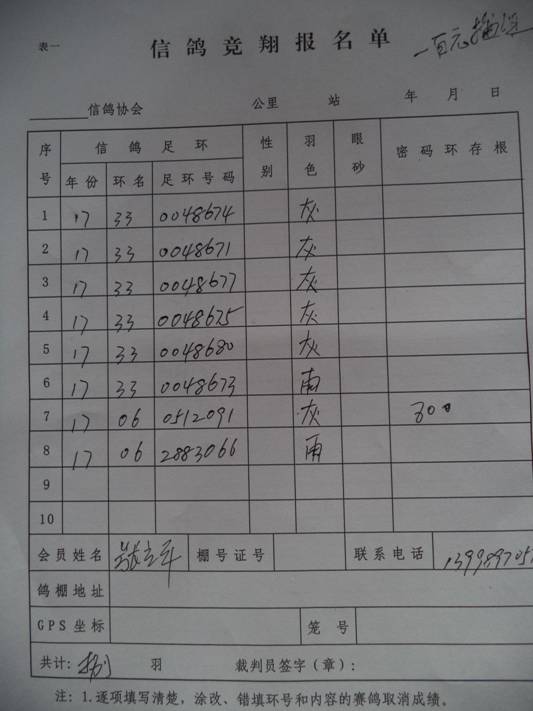 表一
信鸽竞翔报名单
一百元
信鸽协会 公里 站 年 月 日
序号 信鸽足环 性别 羽色 眼砂 密码环存根
年份 环名 足环号码
1 17 33 0048674 灰
2 17 33 0048671 灰
3 17 33 0048677 灰
4 17 33 0048675 灰
5 17 33 0048680 灰
6 17 33 0048673 雨
7 17 06 0512091 灰 300
8 17 06 2883066 雨
9
10
会员姓名 棚号证号 联系电话
鸽棚地址
GPS坐标 笼号
共计: 羽 裁判员签字(章):
注: 1.逐项填写清楚,涂改、错填环号和内容的赛鸽取消成绩。